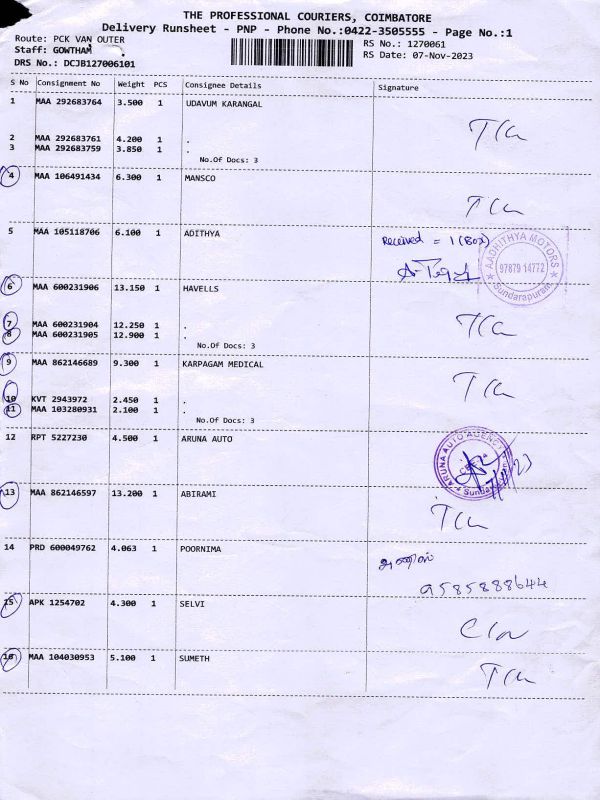 THE PROFESSIONAL COURIERS, COIMBATORE
Delivery Runsheet - PNP - Phone No.:0422-3505555 - Page No.:1
Route: PCK VAN OUTER
Staff: GOWTHAM
DRS No.: DCJB127006101
RS No.: 1270061
RS Date: 07-Nov-2023
S No Consignment No Weight PCS Consignee Details Signature
1 MAA 292683764 3.500 1 UDAVUM KARANGAL
2 MAA 292683761 4.200 1 .
3 MAA 292683759 3.850 1 .
No.Of Docs: 3
4 MAA 106491434 6.300 1 MANSCO
5 MAA 105118706 6.100 1 ADITHYA
Received = 1 (Box)
AADHITHYA MOTORS
97879 14772
Sundarapuram
6 MAA 600231906 13.150 1 HAVELLS
7 MAA 600231904 12.250 1 .
8 MAA 600231905 12.900 1 .
No.Of Docs: 3
9 MAA 862146689 9.300 1 KARPAGAM MEDICAL
10 KVT 2943972 2.450 1 .
11 MAA 103280931 2.100 1 .
No.Of Docs: 3
12 RPT 5227230 4.500 1 ARUNA AUTO
ARUNA AUTO AGENCY
13 MAA 862146597 13.200 1 ABIRAMI
14 PRD 600049762 4.063 1 POORNIMA
9585888644
15 APK 1254702 4.300 1 SELVI
16 MAA 104030953 5.100 1 SUMETH